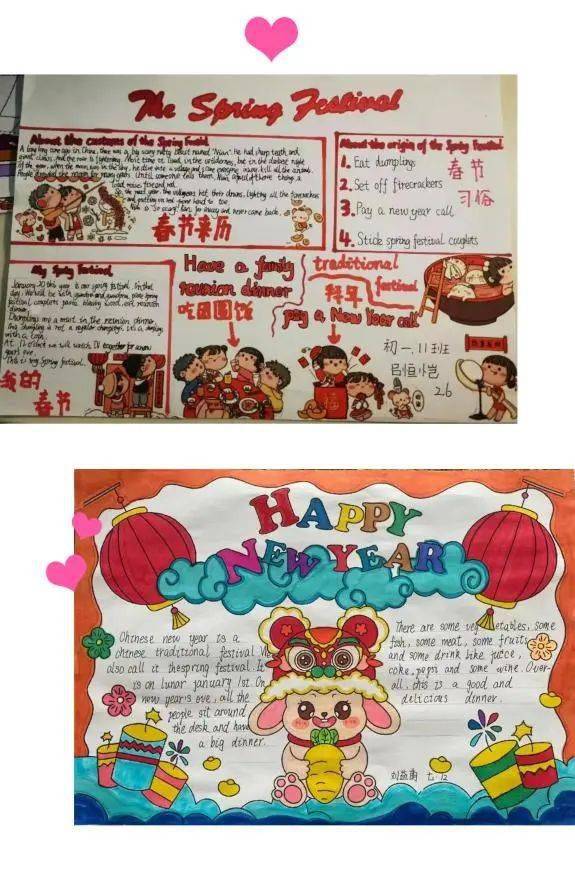 The Spring Festival
About the customs of the Spring Festival
A long long time ago in China, there was a big scary nasty beast named "Nian". He had sharp teeth and
People dreaded the reason for many years. Until someone told them, Nian afraid of three things: a
loud noise, fire and red.
So, the next year, the villagers hit their drums, lighting all the firecrackers
Nian is so scary! Ran far away and never came back.
春节来历
About the origin of the Spring Festival
1. Eat dumplings
2. Set off firecrackers
3. Pay a new year call
4. Stick spring festival couplets
春节
习俗
My Spring Festival
January 20 this year is our spring festival. In that
At 12 o'clock we will watch TV together for a new
year's eve.
This is my Spring festival.
我的
春节
Have a family
reunion dinner
吃团圆饭
traditional
festival
拜年
pay a New Year call
福
初一.11班
吕恒恺
2.6
HAPPY
NEW YEAR
Chinese new year is a
chinese traditional festival. We
also call it thespring festival. It
is on lunar january 1st. On
new year's eve, all the
people sit around
the desk and have
a big dinner.
There are some vegetables, some
fish, some meat, some fruits
and some drink like juice,
coke, pepsi and some wine. Over-
all, this is a good and
delicious dinner.
七.12